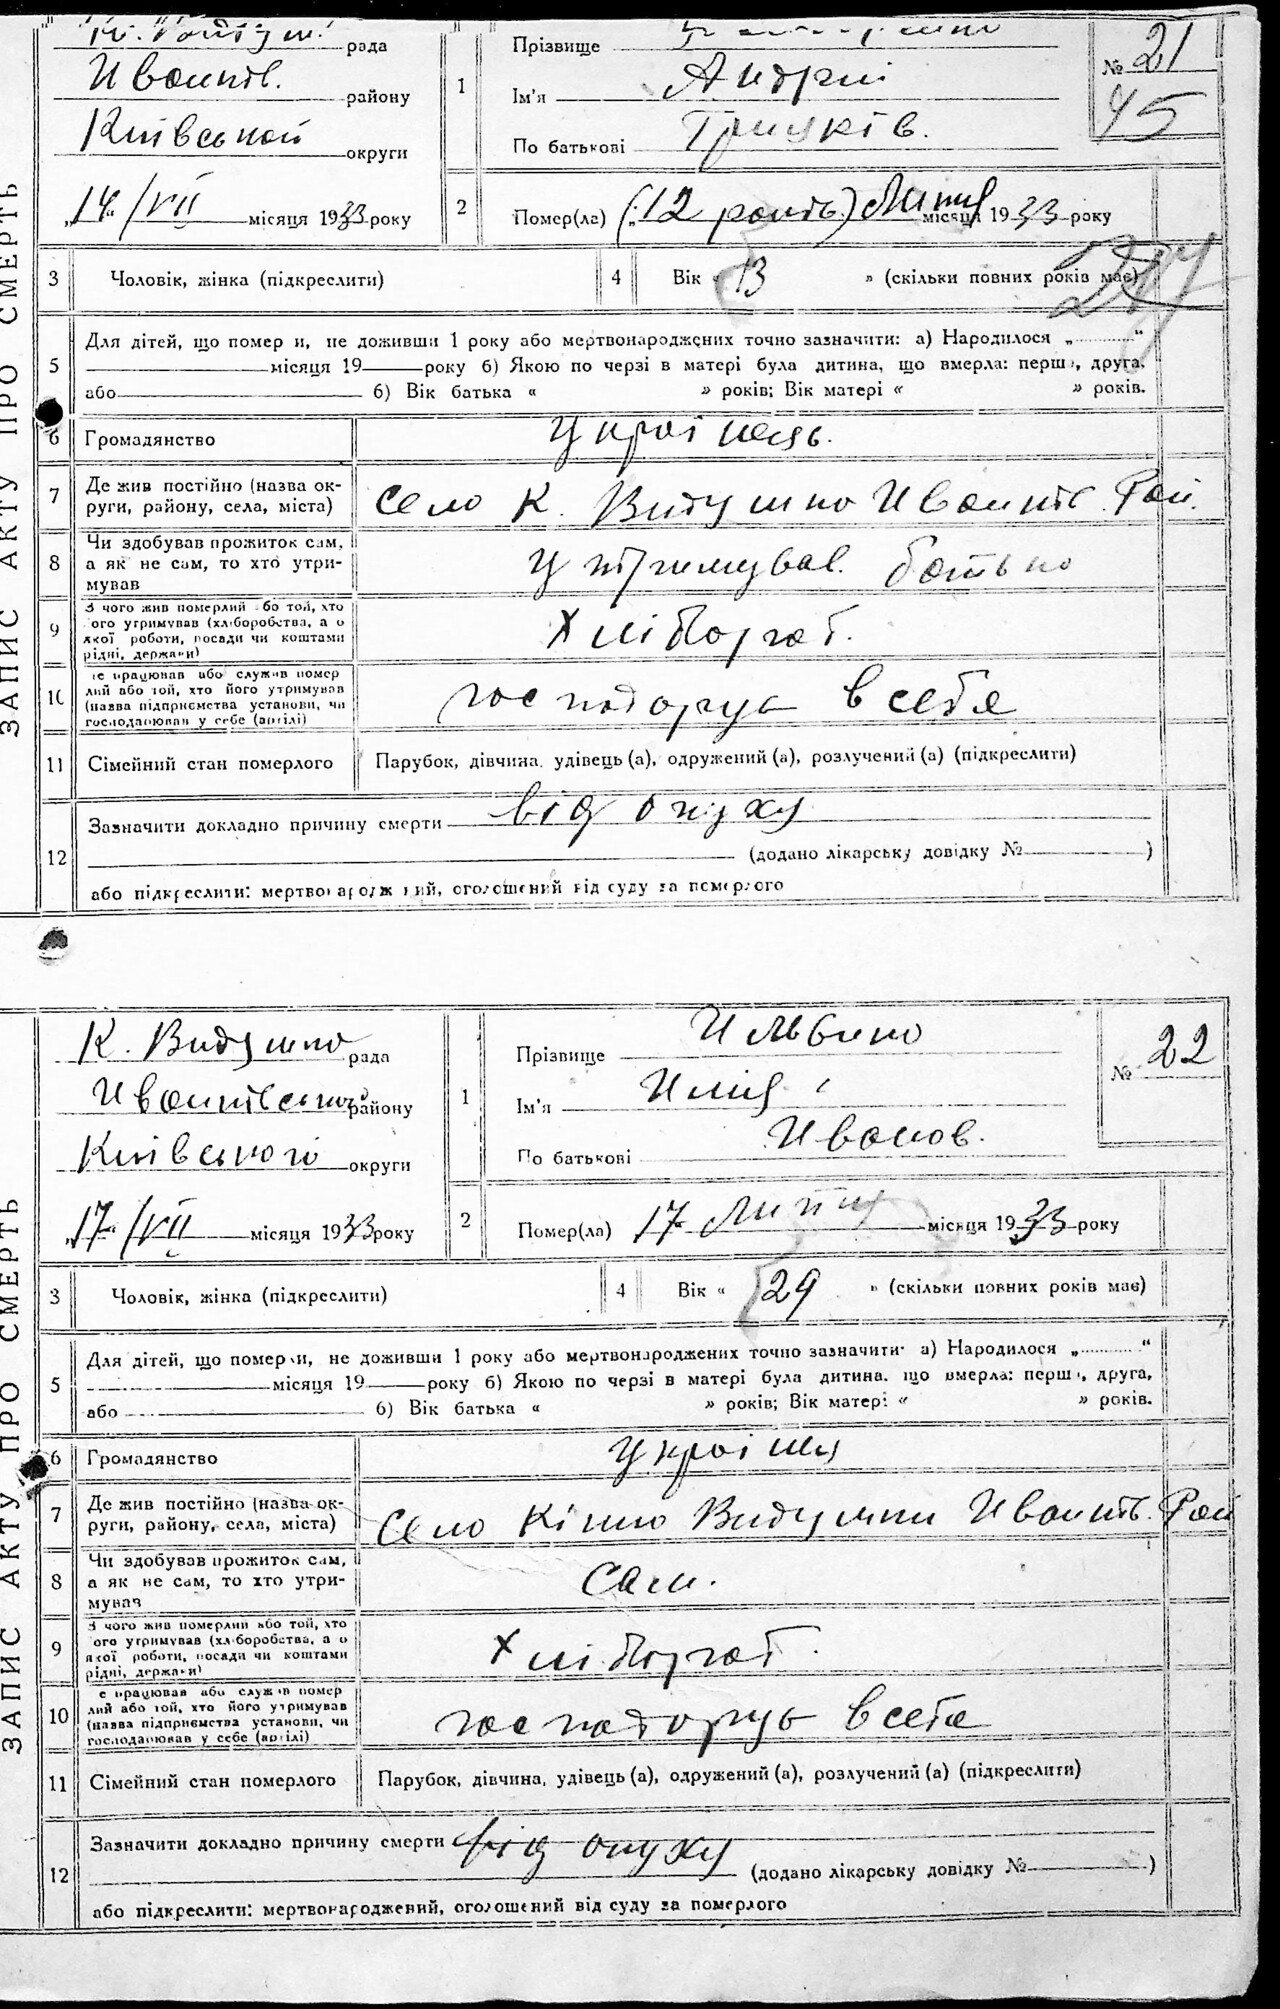 ЗАПИС АКТУ ПРО СМЕРТЬ
рада
Иванків. району
Київської округи
"14"/VII місяця 1933 року
1
Прізвище
Ім'я Андрій
По батькові
№ 21
45
2
Помер(ла) („12 липня) місяця 1933 року
3
Чоловік, жінка (підкреслити)
4
Вік « 13 » (скільки повних років має)
5
Для дітей, що помер и, не доживши 1 року або мертвонароджених точно зазначити: а) Народилося „ “
місяця 19 року б) Якою по черзі в матері була дитина, що вмерла: перш , друга,
або б) Вік батька « » років; Вік матері « » років.
6
Громадянство
українець.
7
Де жив постійно (назва ок-
руги, району, села, міста)
село К. Видумка Иванків. Рай.
8
Чи здобував прожиток сам,
а як не сам, то хто утри-
мував
утримував. батько
9
З чого жив померлий або той, хто
ого утримував (хліборобства, а о
якої роботи, посади чи коштами
рідні, держави)
Хлібороб.
10
е працював або служив помер
лий або той, хто його утримував
(назва підприємства установи, чи
господарював у себе (артілі)
господарував в себе
11
Сімейний стан померлого
Парубок, дівчина, удівець (а), одружений (а), розлучений (а) (підкреслити)
12
Зазначити докладно причину смерти від опуху
(додано лікарську довідку № )
або підкреслити: мертвонароджений, оголошений від суду за померлого
ЗАПИС АКТУ ПРО СМЕРТЬ
К. Видумка рада
Иванківського району
Київського округи
"17"/VII місяця 1933 року
1
Прізвище
Ім'я Илля
По батькові Иванов.
№ 22
2
Помер(ла) 17 Липня місяця 1933 року
3
Чоловік, жінка (підкреслити)
4
Вік « 29 » (скільки повних років має)
5
Для дітей, що помер и, не доживши 1 року або мертвонароджених точно зазначити: а) Народилося „ “
місяця 19 року б) Якою по черзі в матері була дитина, що вмерла: перш , друга,
або б) Вік батька « » років; Вік матері « » років.
6
Громадянство
7
Де жив постійно (назва ок-
руги, району, села, міста)
село Видумка Иванків. Рай
8
Чи здобував прожиток сам,
а як не сам, то хто утри-
мував
сам.
9
З чого жив померлий або той, хто
ого утримував (хліборобства, а о
якої роботи, посади чи коштами
рідні, держави)
Хлібороб.
10
е працював або служив помер
лий або той, хто його утримував
(назва підприємства установи, чи
господарював у себе (артілі)
господарував в себе
11
Сімейний стан померлого
Парубок, дівчина, удівець (а), одружений (а), розлучений (а) (підкреслити)
12
Зазначити докладно причину смерти від опуху
(додано лікарську довідку № )
або підкреслити: мертвонароджений, оголошений від суду за померлого